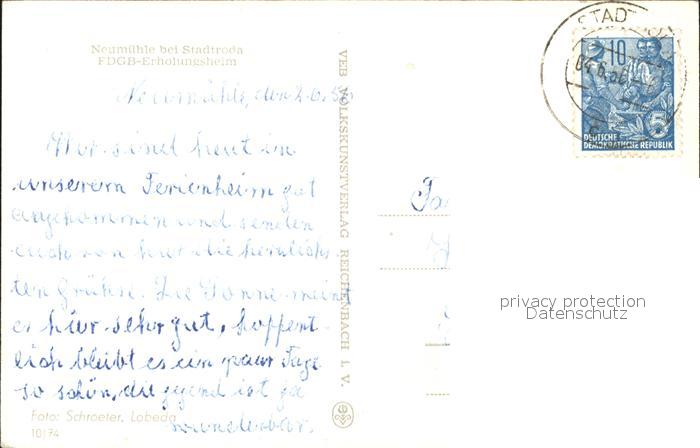 Neumühle bei Stadtroda
FDGB-Erholungsheim
Neumühle, den 2.6.56
Wir sind heut in
unserem Ferienheim gut
angekommen und senden
euch von hier die herzlichs-
ten Grüße. Die Sonne meint
es hier sehr gut, hoffent-
lich bleibt es ein paar Tage
so schön, die gegend ist ja
wunderbar.
Foto: Schroeter, Lobeda
10/74
VEB VOLKSKUNSTVERLAG REICHENBACH I. V.
STADTRO
10
5
DEUTSCHE
DEMOKRATISCHE REPUBLIK
privacy protection
Datenschutz